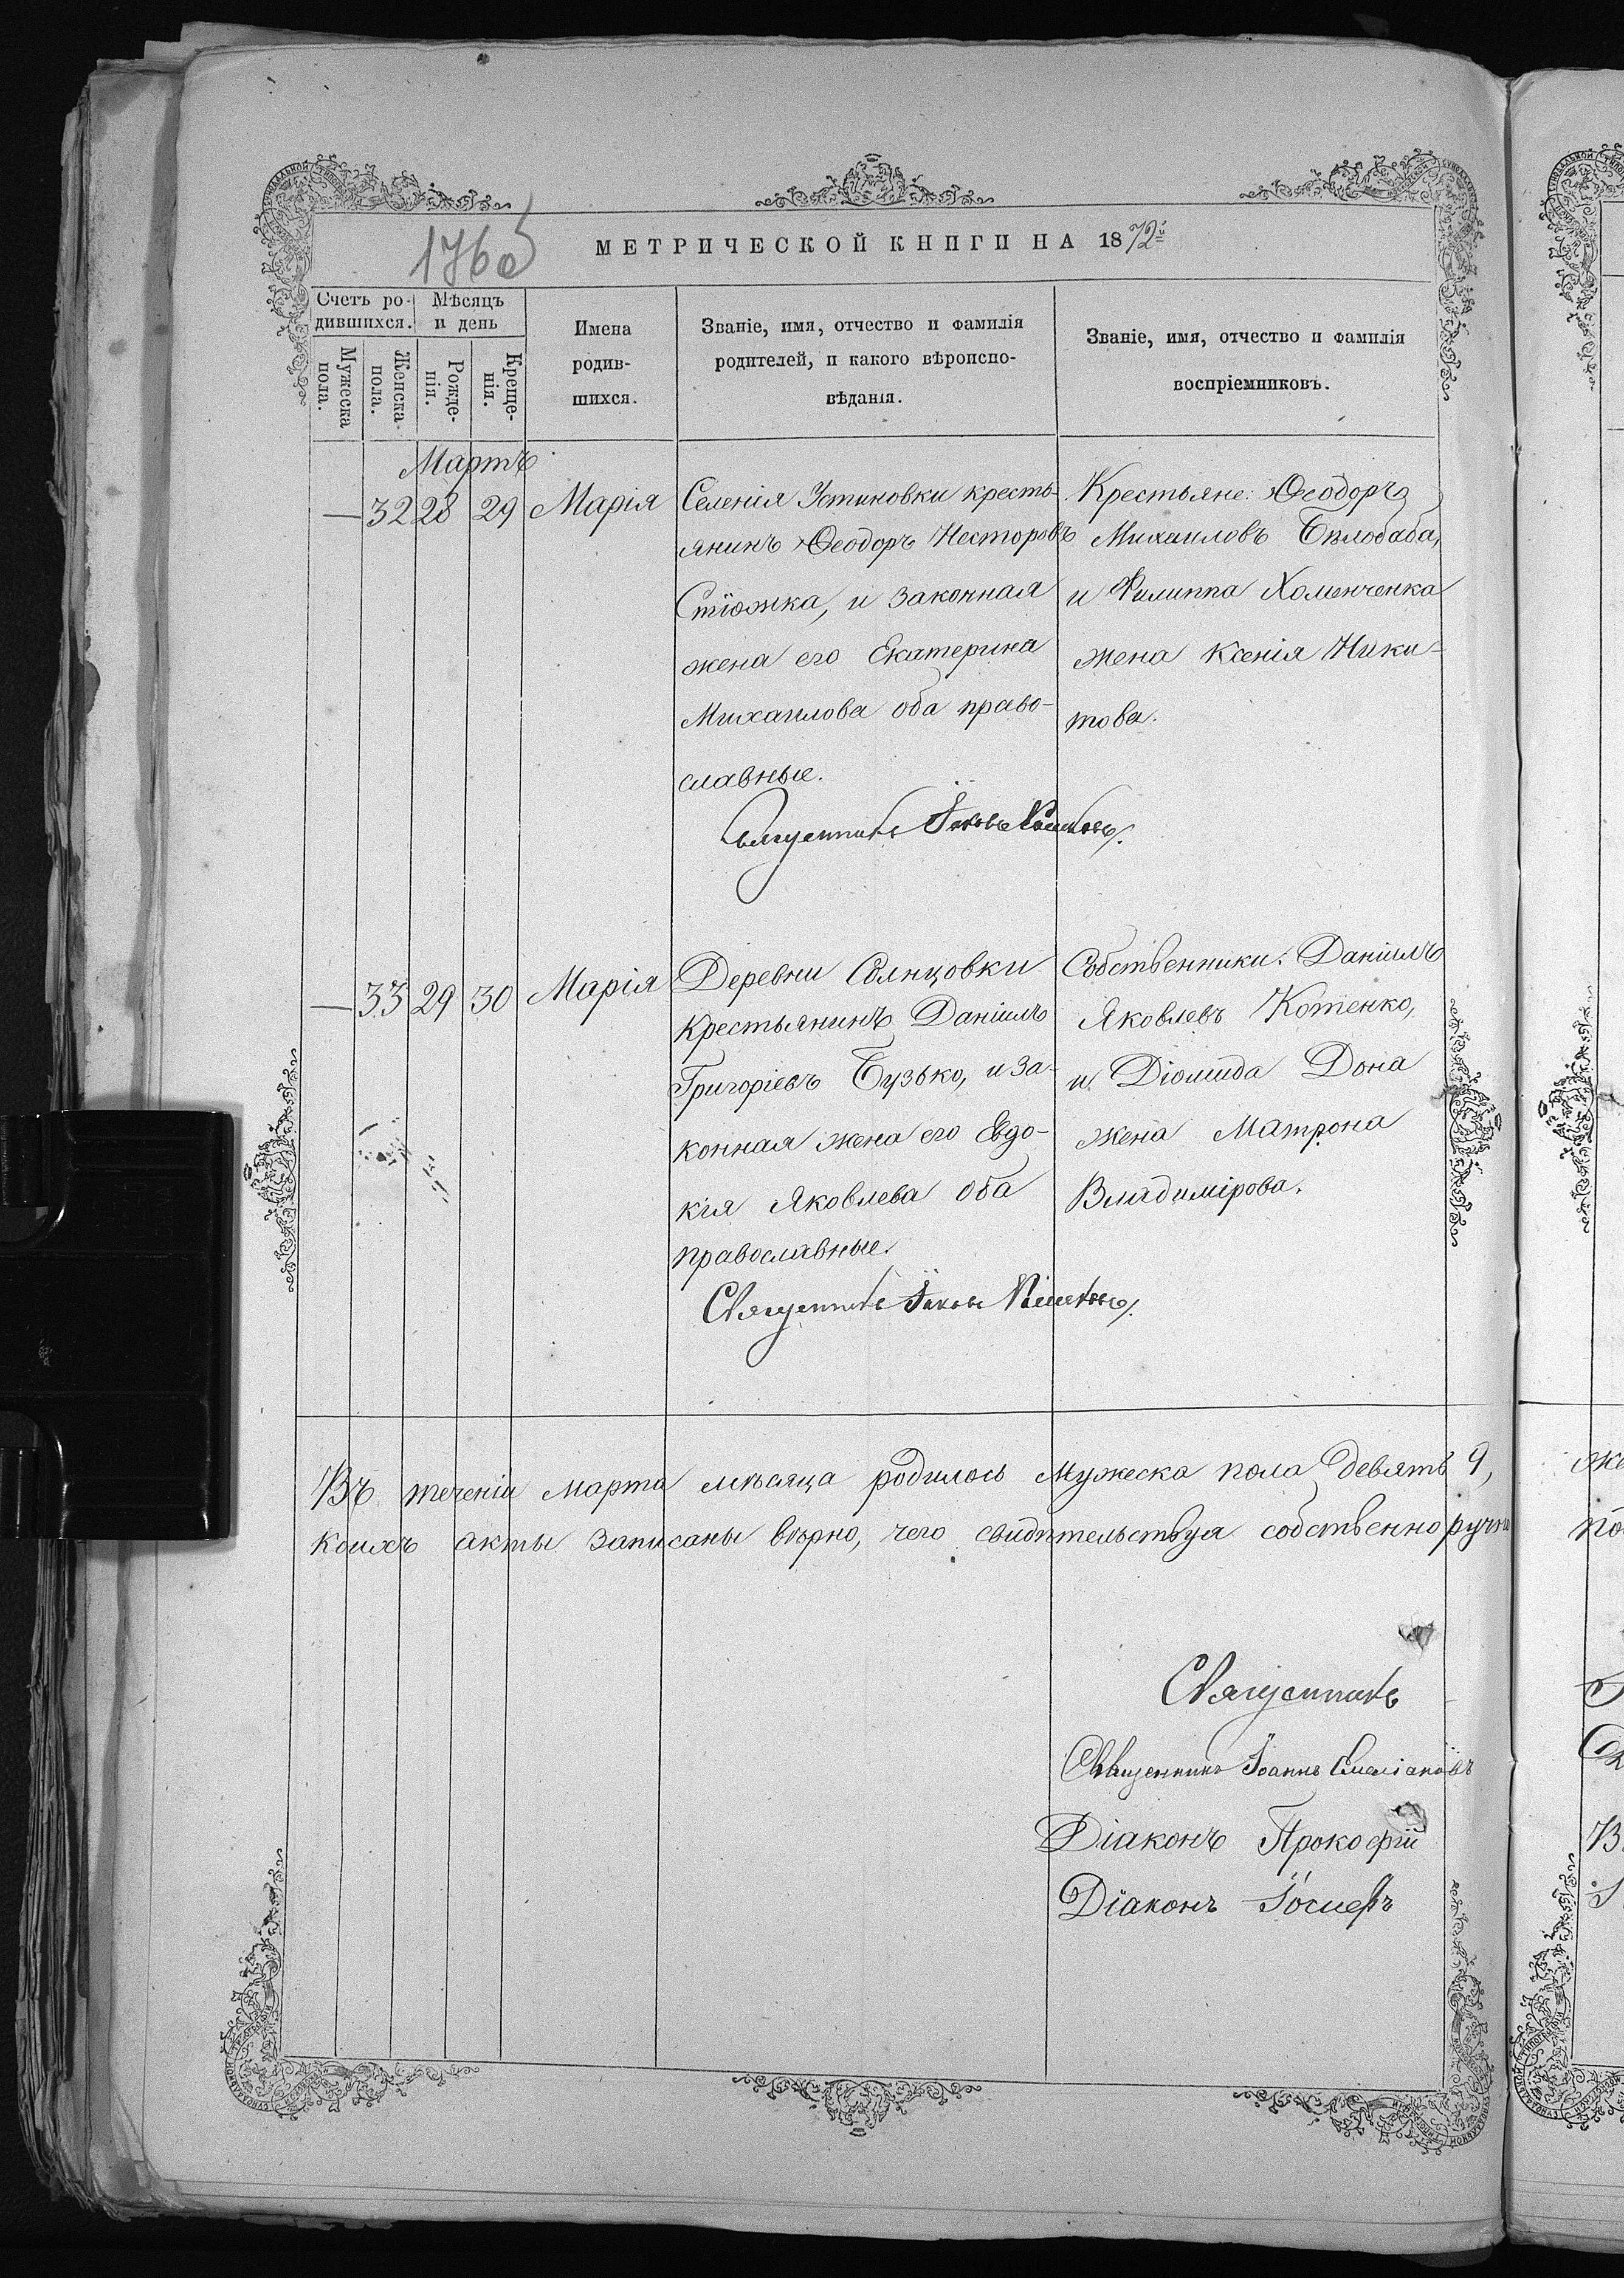 176 об
МЕТРИЧЕСКОЙ КНИГИ НА 1872й
Счетъ ро-
дившихся.
Мѣсяцъ
и день
Мужеска
пола.
Женска
пола.
Рожде-
нія.
Креще-
нія.
Имена
родив-
шихся.
Званіе, имя, отчество и фамилія
родителей, и какого вѣроиспо-
вѣданія.
Званіе, имя, отчество и фамилія
воспріемниковъ.
Мартъ
— 32 28 29 Марія
Селенія Устиновки кресть-
янинъ Ѳеодоръ Несторовъ
Стіожка, и законная
жена его Екатерина
Михаилова оба право-
славные.
Священникъ Іаковъ
Крестьяне: Ѳеодоръ
Михаиловъ Бѣлобаба,
и Филиппа Хоменченка
жена Ксенія Ники-
това.
— 33 29 30 Марія
Деревни Солнцовки
крестьянинъ Даніилъ
Григоріевъ Бузько, и за-
конная жена его Евдо-
кія Яковлева оба
православные.
Священникъ Іаковъ
Собственники: Даніилъ
Яковлевъ Котенко,
и Діомида Дона
жена Матрона
Владимірова.
Въ теченіи марта мѣсяца родилось мужеска пола девять 9,
коихъ акты записаны вѣрно, чего свидѣтельствуя собственноручно
Священникъ
Священникъ Іоаннъ
Діаконъ Прокофій
Діаконъ Іосифъ